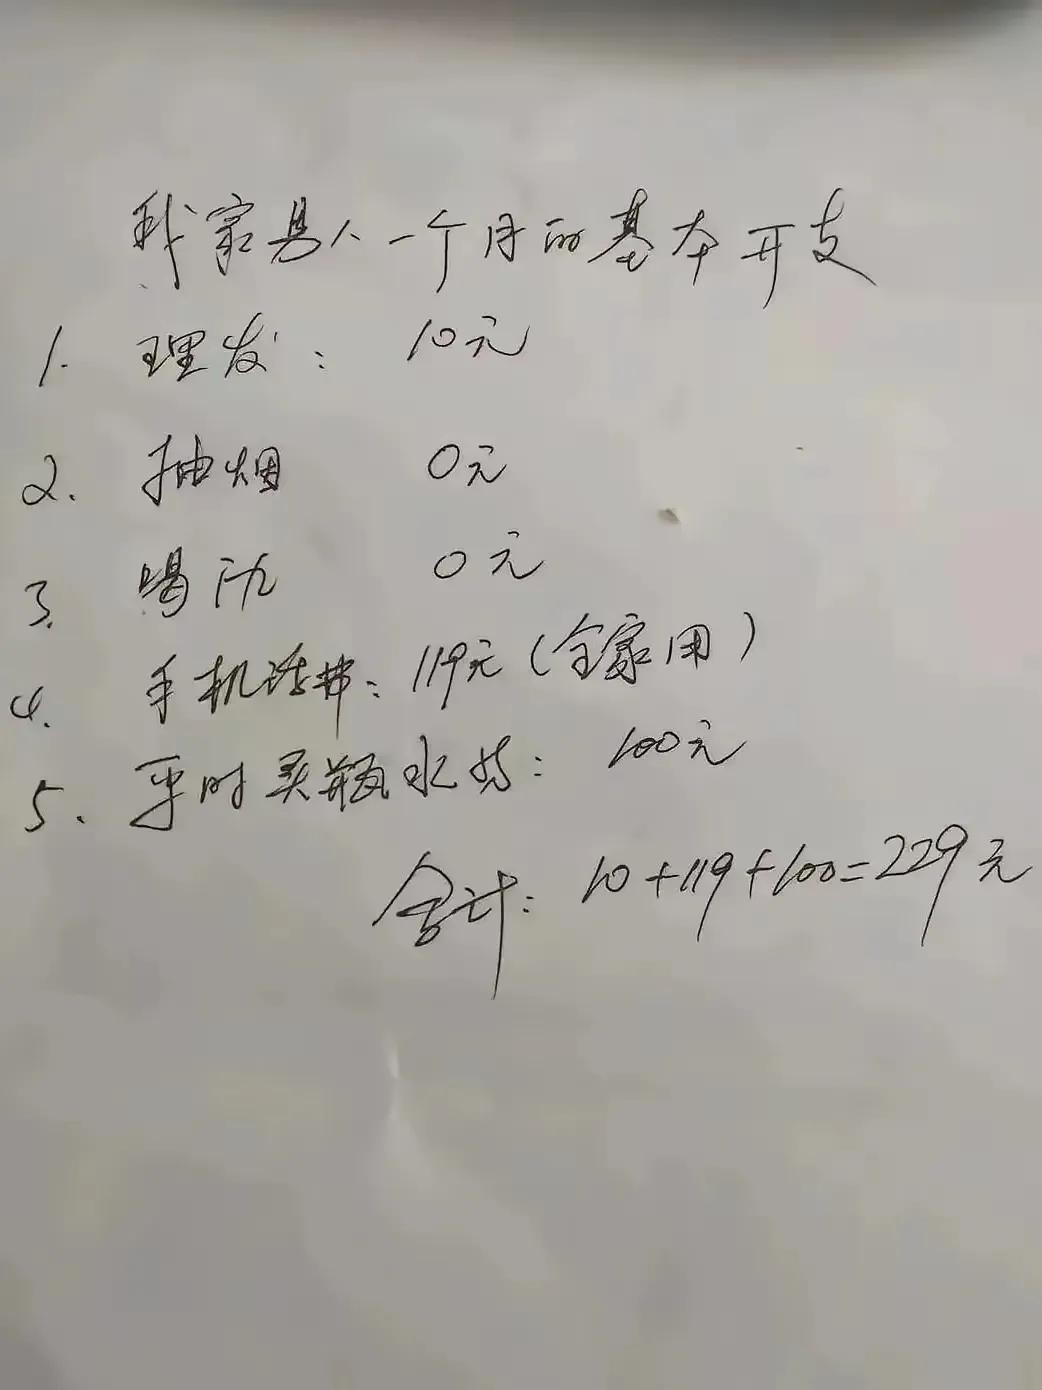 我家男人一个月的基本开支
1. 理发: 10元
2. 抽烟 0元
3. 喝酒 0元
4. 手机话费: 119元(全家用)
5. 平时买瓶水好: 100元
合计: 10+119+100=229元